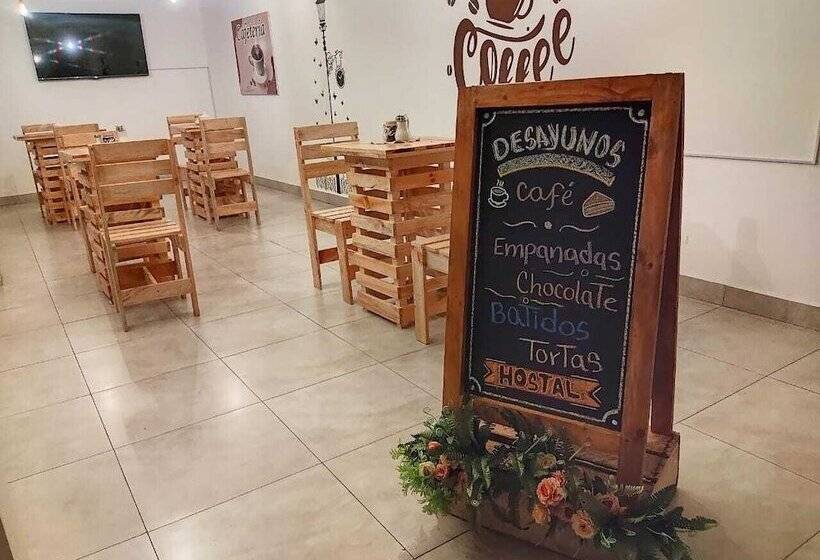 Cafetería
Coffee
DESAYUNOS
Café
Empanadas
Chocolate
Batidos
Tortas
HOSTAL